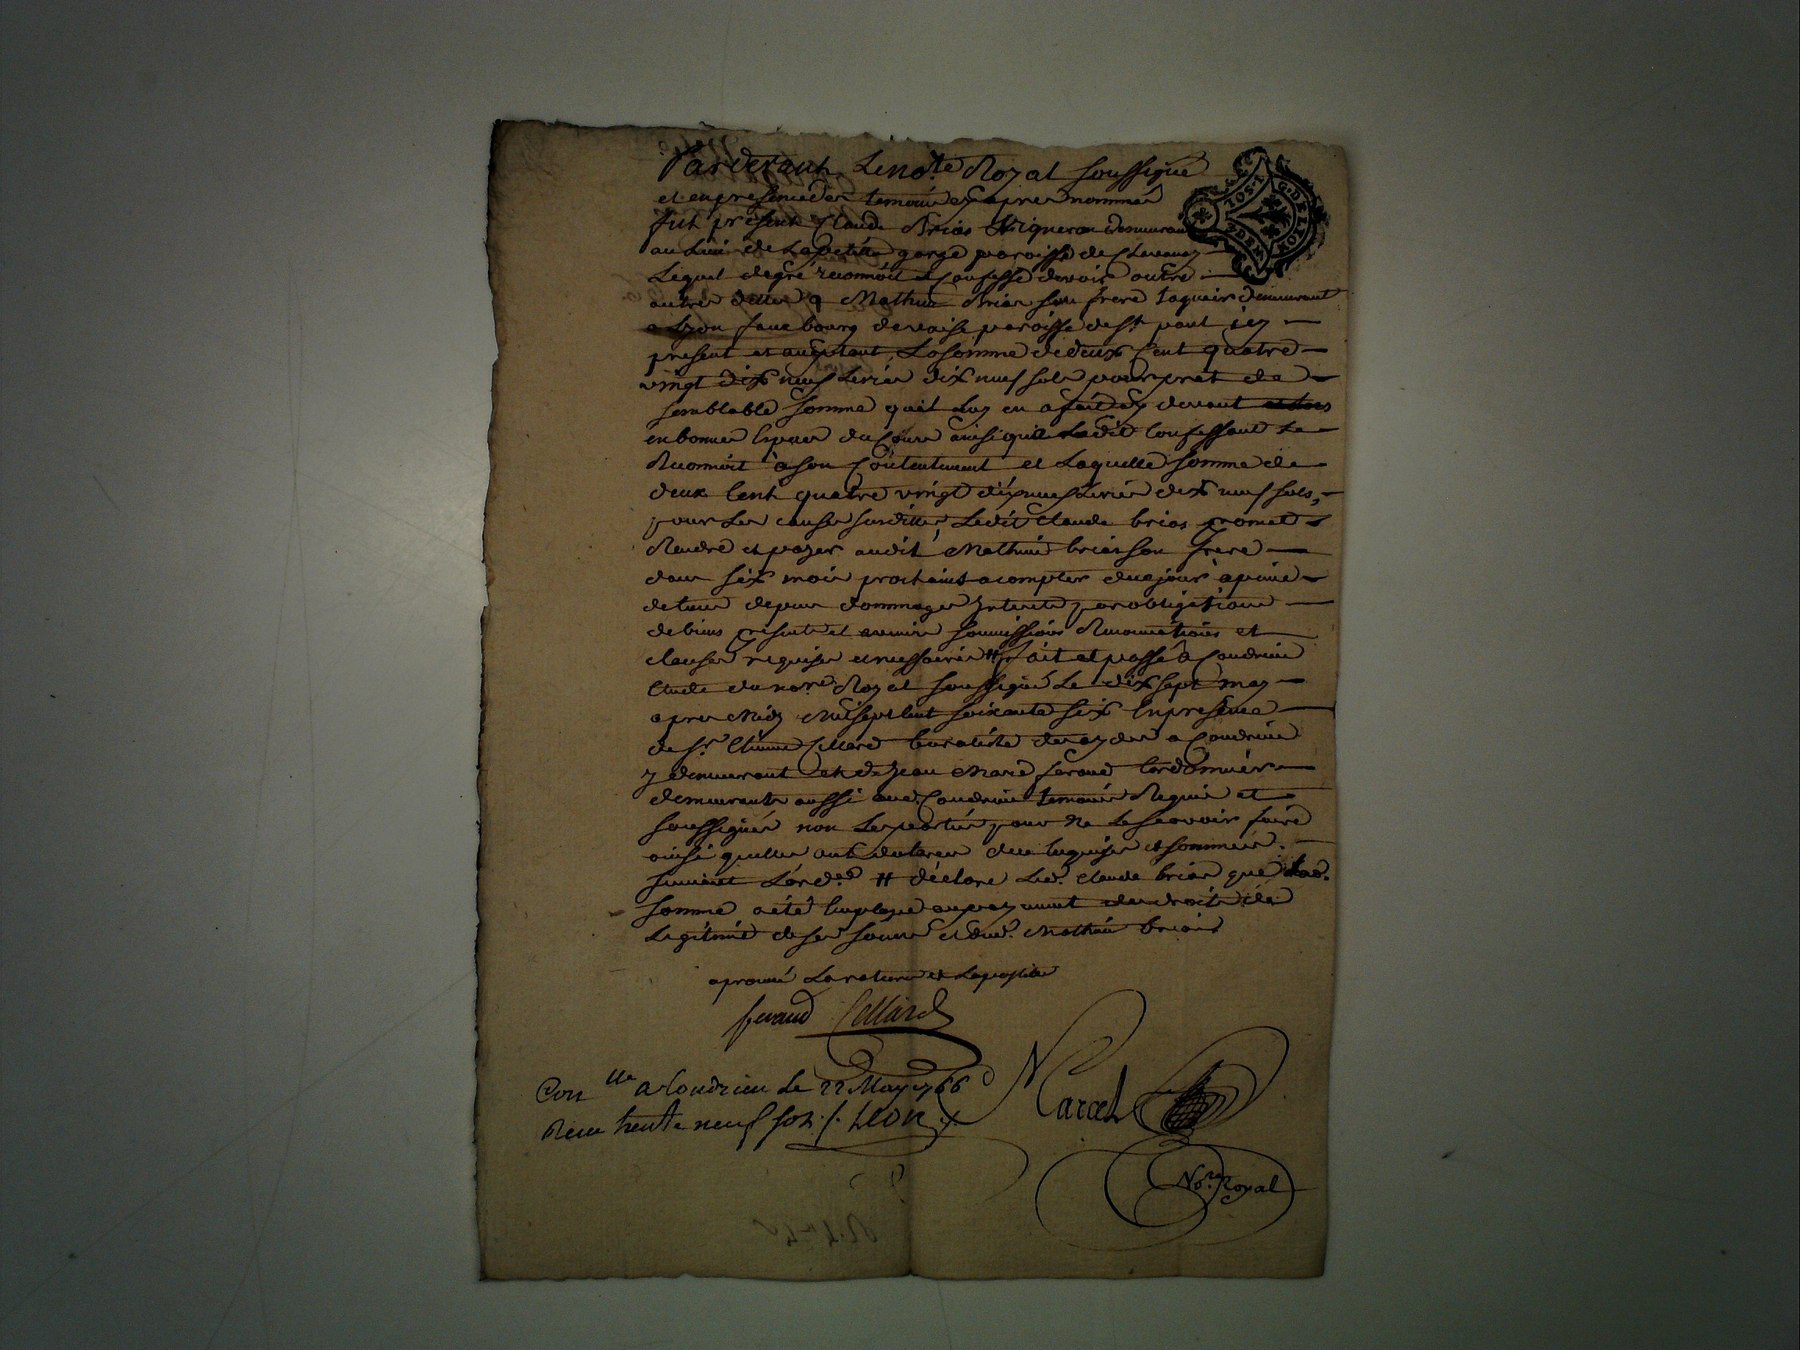 Pardevant Le no.re Royal soussigné
et en presence des temoins cy apres nommés
fut présent Claude Brias Vigneron demeurant
au Lieu de La petite gorge paroisse de
Lequel de gré reconnoit et Confesse devoir outre
autres dettes a Mathieu Brias son frere demeurant
a Lyon faux bourg de vaise paroisse de St. paul icy
present et acceptant, La somme de deux Cent quatre
vingt dix neuf Livres dix neuf sols pour pret de
semblable somme quil Luy en a fait cy devant
en bonnes Especes du Cours ainsi que Ledit Confessant Le
Reconnoit à son Contentement et Laquelle somme de
deux Cent quatre vingt dix neuf Livres dix neuf sols,
pour Les causes susdittes Ledit Claude brias promet
Rendre et payer audit Mathieu brias son frere
dans six mois prochains a compter de ce jour à peine
de tous depens dommages Interets par obligations
de biens presents et avenir soumissions Renonciations et
clauses requises et necessaires # fait et passé à Condrieu
Etude du no.re Royal soussigné Le dix sept may
apres Midy Mil sept Cent soixante six En presence
de Sr. Etienne Cellard buraliste des aydes a Condrieu
y demeurant et de Jean Marie feraud Cordonnier
demeurants aussi aud. Condrieu temoins Requis et
soussignés non Les parties pour ne Le sçavoir faire
ainsi quelles ont declarer de ce Enquises et sommées.
suivant L'ord.ce # déclare Led. Claude brias que Lad.
somme a été Employé au payement des droits de
Legitime de ses soeurs et dud. Mathieu brias
aprouvé La rature et L'apostille
feraud Cellard
Con.lle a Condrieu le 22 May 1766
Receu trente neuf sols f. LEON
Marcel
No.re Royal
2 SOLS 4 DEN
G. DE LYON